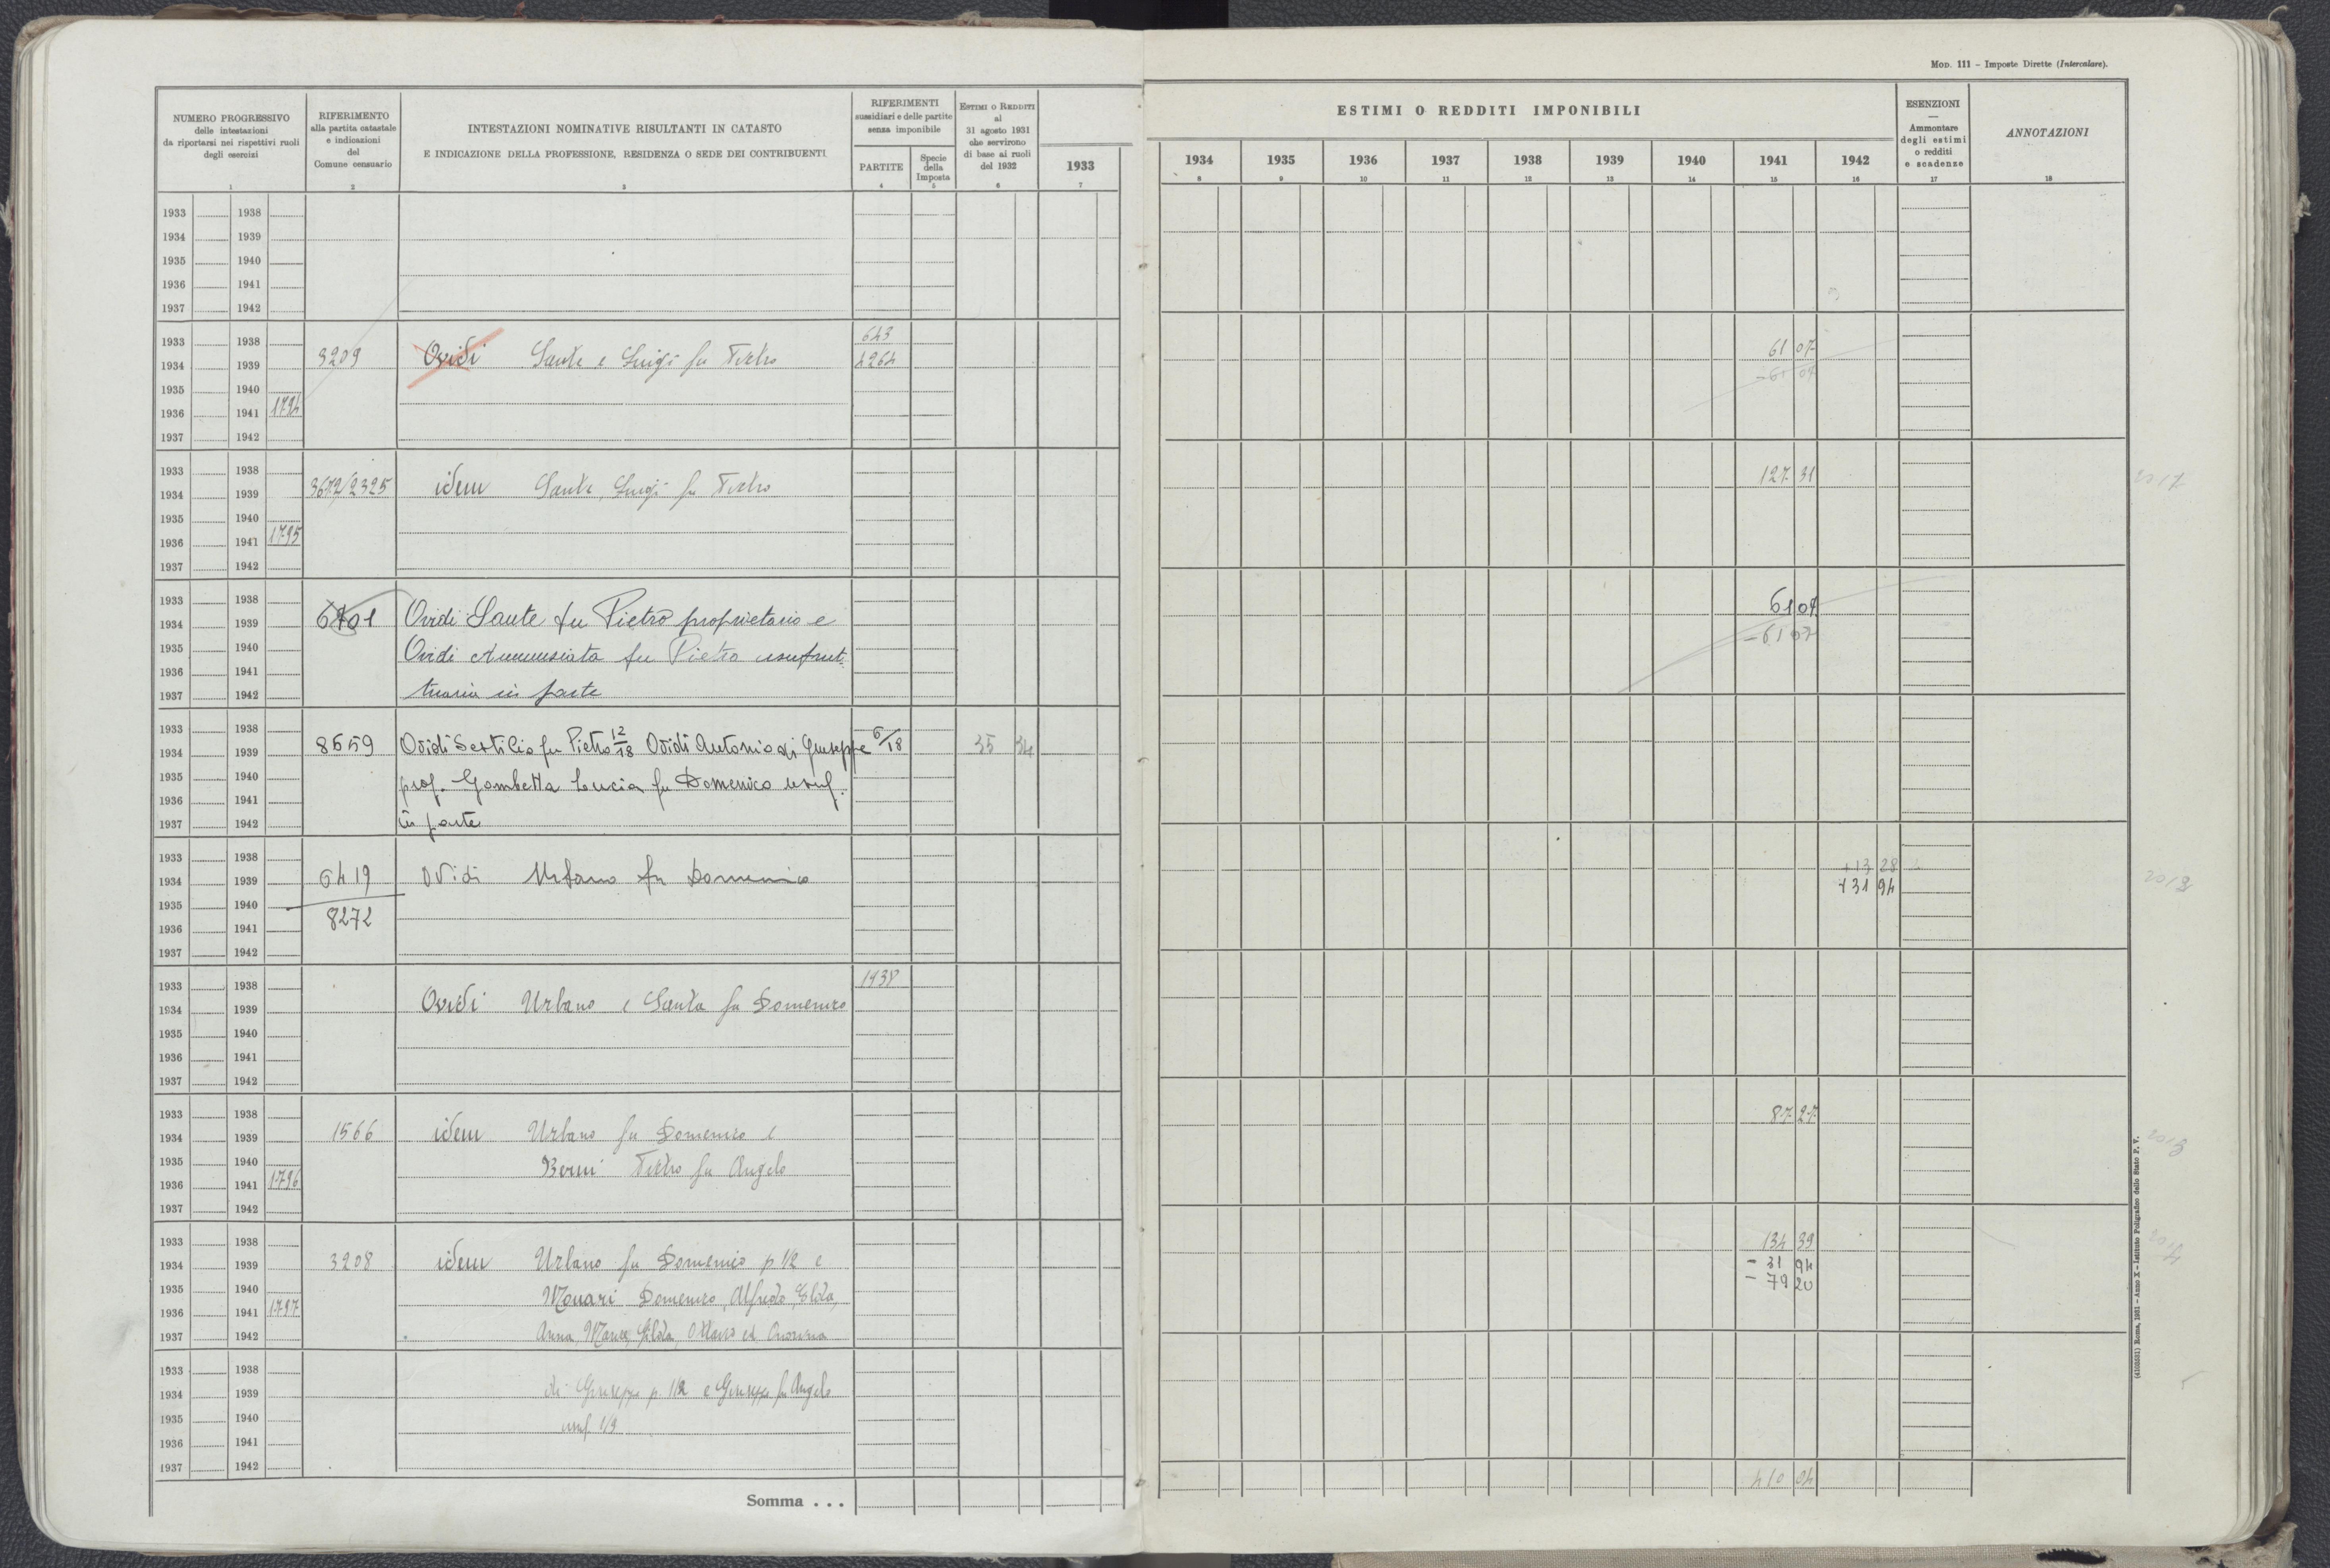 Mod. 111 – Imposte Dirette (Intercalare).
NUMERO PROGRESSIVO
delle intestazioni
da riportarsi nei rispettivi ruoli
degli esercizi
1
RIFERIMENTO
alla partita catastale
e indicazioni
del
Comune censuario
2
INTESTAZIONI NOMINATIVE RISULTANTI IN CATASTO
E INDICAZIONE DELLA PROFESSIONE, RESIDENZA O SEDE DEI CONTRIBUENTI
3
RIFERIMENTI
sussidiari e delle partite
senza imponibile
PARTITE
4
Specie
della
Imposta
5
ESTIMI O REDDITI
al
31 agosto 1931
che servirono
di base ai ruoli
del 1932
6
1933
7
ESTIMI O REDDITI IMPONIBILI
1934 1935 1936 1937 1938 1939 1940 1941 1942
8 9 10 11 12 13 14 15 16
ESENZIONI
—
Ammontare
degli estimi
o redditi
e scadenze
17
ANNOTAZIONI
18
1933 1938
1934 1939
1935 1940
1936 1941
1937 1942
1933 1938 643
1934 1939 3209 Ovidi Sante e Luigi fu Pietro 4264 61 07
1935 1940 -61 07
1936 1941 1794
1937 1942
1933 1938
1934 1939 3672/2325 idem Sante, Luigi fu Pietro 127 31
1935 1940
1936 1941 1795
1937 1942
1933 1938
1934 1939 6401 Ovidi Sante fu Pietro proprietario e 61 07
1935 1940 Ovidi Annunsiata fu Pietro usufrut- -61 07
1936 1941
1937 1942 tuaria in parte
1933 1938
1934 1939 8659 Ovidi Sestilio fu Pietro 12/18 Ovidi Antonio di Giuseppe 6/18 35 34
1935 1940 prof. Gambetta Lucia fu Domenico usuf.
1936 1941
1937 1942 in parte
1933 1938 +13 28
1934 1939 6419 Ovidi Urbano fu Domenico +31 94
1935 1940 8272
1936 1941
1937 1942
1933 1938
1934 1939 Ovidi Urbano e Santa fu Domenico
1935 1940
1936 1941
1937 1942
1933 1938 87 27
1934 1939 1566 idem Urbano fu Domenico e
1935 1940 Berni Pietro fu Angelo
1936 1941 1796
1937 1942
1933 1938 134 39
1934 1939 3208 idem Urbano fu Domenico p 1/2 e - 31 94
1935 1940 Monari Domenico, Alfredo, Elda, - 79 20
1936 1941 1797
1937 1942 Anna, Maria, Gilda,
1933 1938
1934 1939 di Giuseppe p. 1/2 e Giuseppe fu Angelo
1935 1940 usuf. 1/9
1936 1941
1937 1942
410 04
Somma . . .
(4103531) Roma, 1931 – Anno X – Istituto Poligrafico dello Stato P. V.